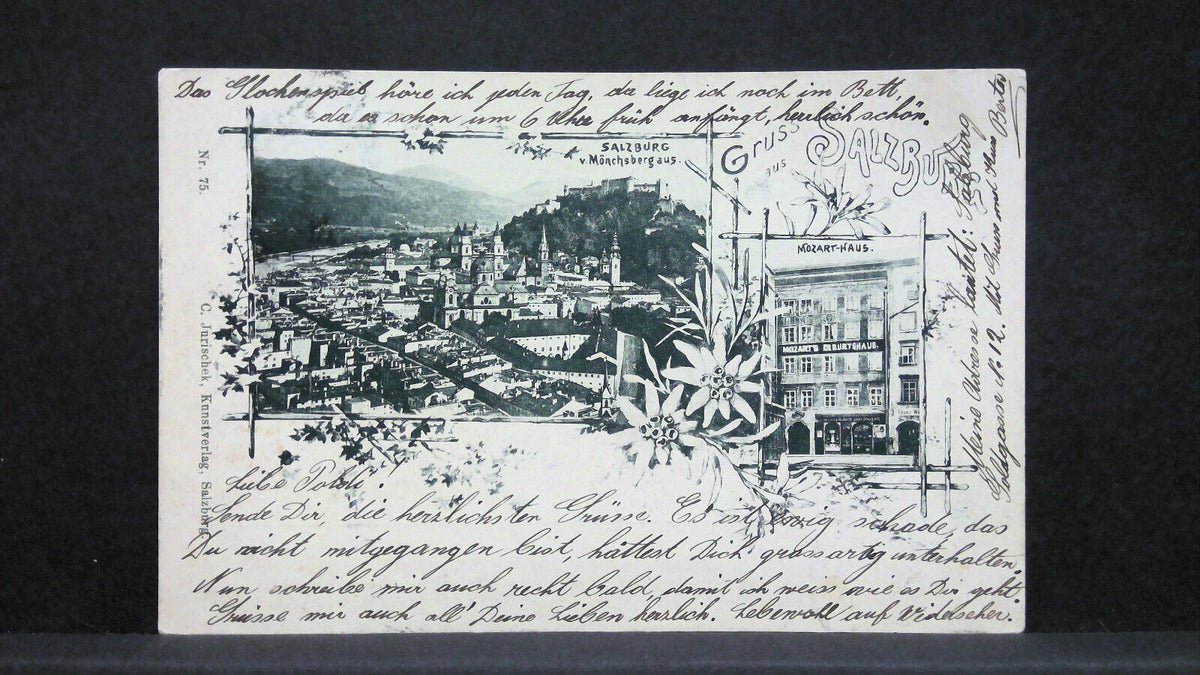 Das Glockenspiel höre ich jeden Tag, da liege ich noch im Bett,
da es schon um 6 Uhr früh anfängt, herrlich schön.
Gruss
aus
SALZBURG
SALZBURG
v. Mönchsberg aus.
MOZART-HAUS.
MOZART'S GEBURTSHAUS.
Nr. 75.
C. Jurischek, Kunstverlag, Salzburg
Liebe Poldi!
Sende Dir, die herzlichsten Grüsse. Es ist ewig schade, das
Du nicht mitgegangen bist, hättest Dich grossartig unterhalten.
Nun schreibe mir auch recht bald, damit ich weiss wie es Dir geht.
Grüsse mir auch all' Deine Lieben herzlich. Lebewohl auf Widerseher.
Meine Adresse lautet: Salzburg
Goldgasse No 12. Mit Gruss und Kuss Berta